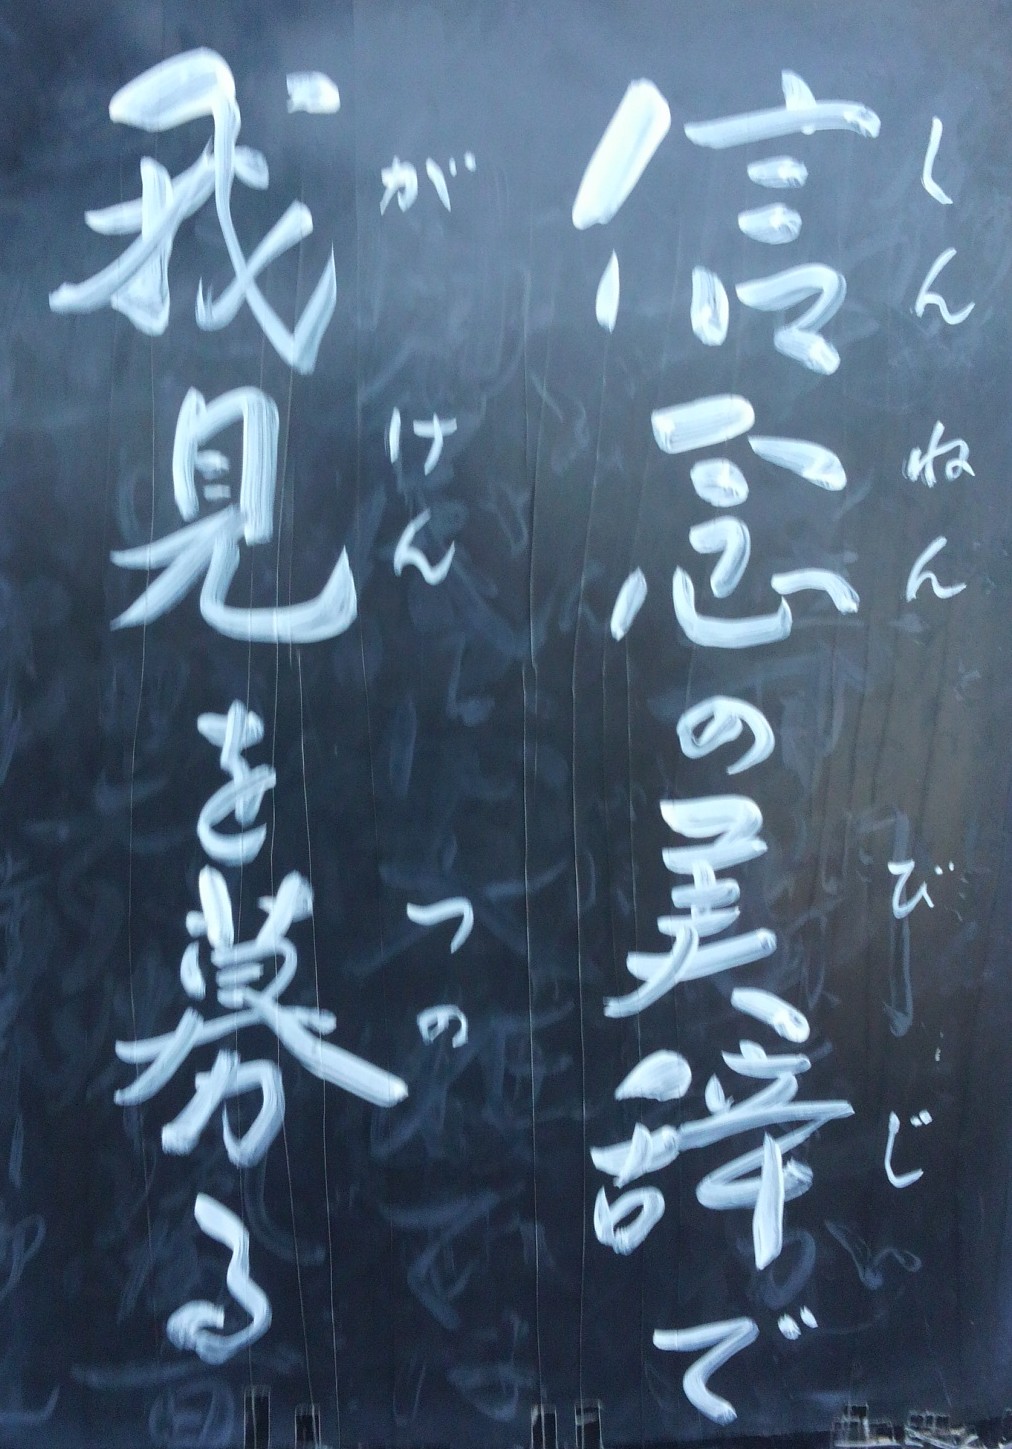 しんねん びじ
信念の美辞で
がけん つの
我見を募る